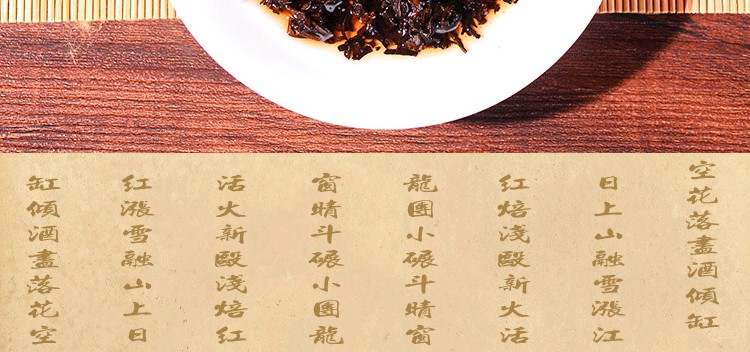 空花落盡酒傾缸
日上山融雪漲江
紅焙淺毆新火活
龍團小碾斗晴窗
窗晴斗碾小團龍
活火新毆淺焙紅
紅漲雪融山上日
缸傾酒盡落花空